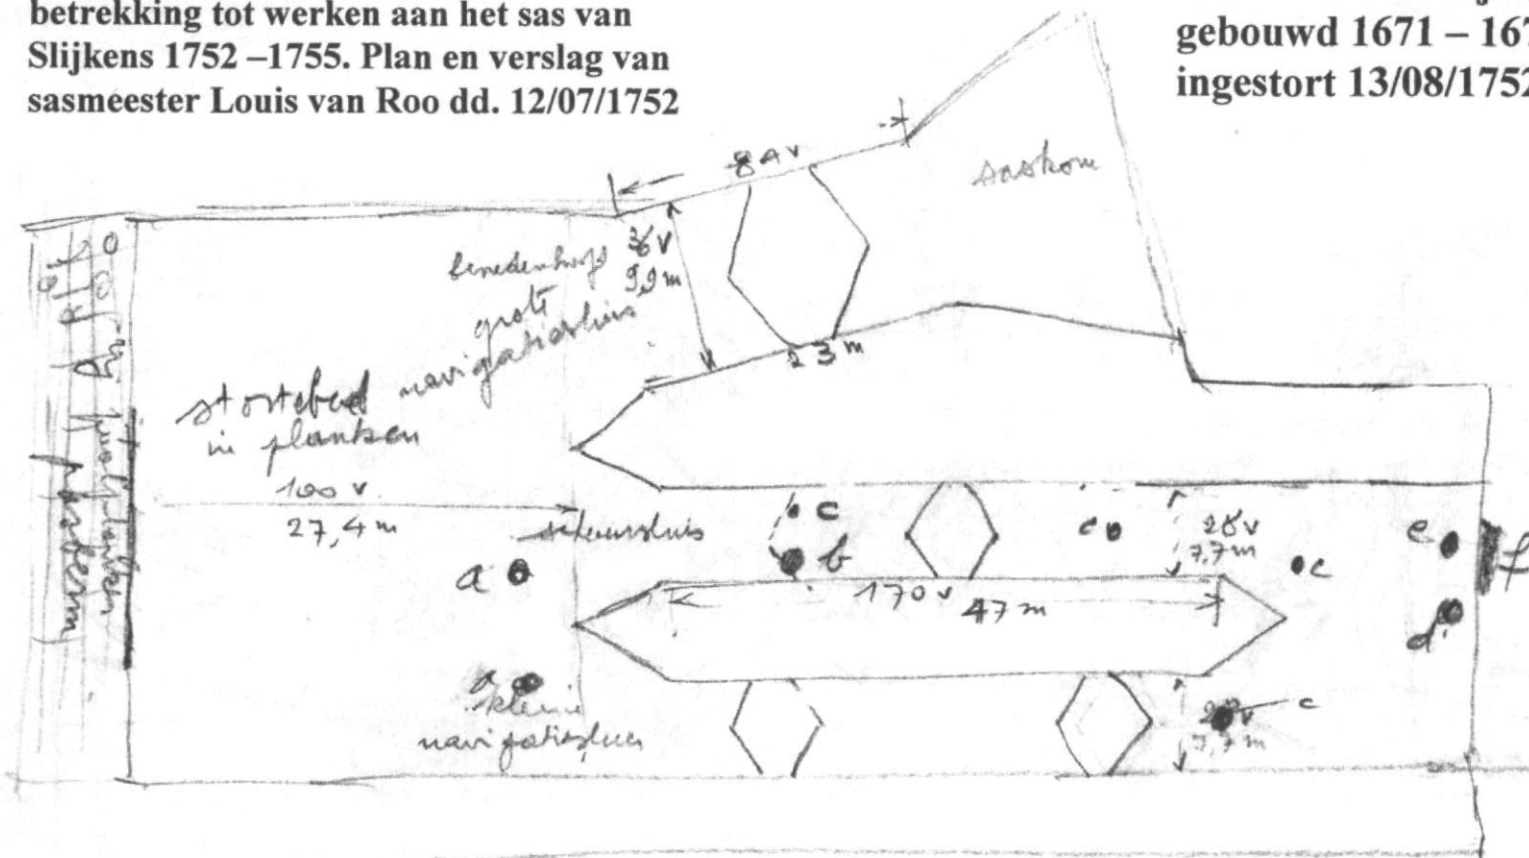 betrekking tot werken aan het sas van
Slijkens 1752 –1755. Plan en verslag van
sasmeester Louis van Roo dd. 12/07/1752
gebouwd 1671 – 167
ingestort 13/08/1752
84 v
saskom
benedenhoofd
grote
navigatiesluis
36 v
9,9 m
23 m
stortebed
in planken
100 v
27,4 m
schuursluis
a
c
b
c
28 v
7,7 m
c
e
f
170 v
47 m
d
a
kleine
navigatiesluis
28 v
7,7 m
c